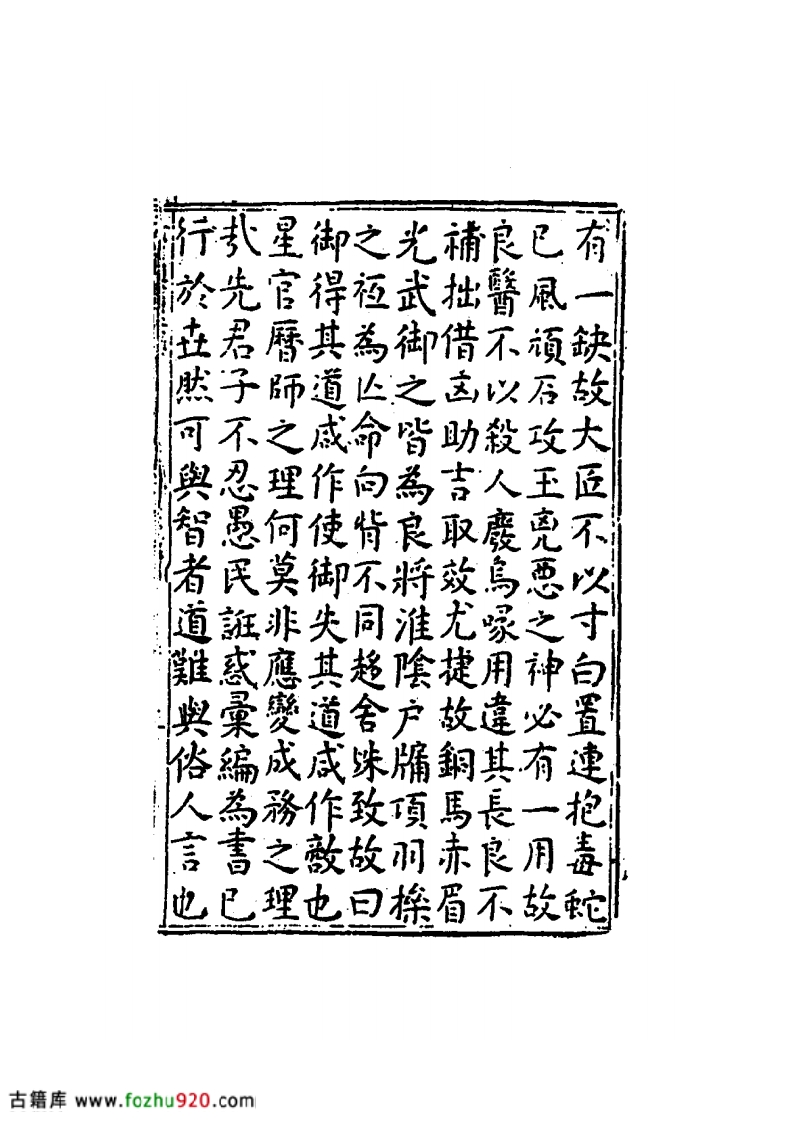 有一缺故大匠不以寸白置連抱毒蛇
已風頑石攻玉兇惡之神必有一用故
良醫不以殺人廢烏喙用違其長良不
補拙借凶助吉取效尤捷故銅馬赤眉
光武御之皆為良將淮陰户牖項羽操
之袛為亡命向背不同趍舍殊致故曰
御得其道咸作使御失其道咸作敵也
星官曆師之理何莫非應變成務之理
㢤先君子不忍愚民誑惑彙編為書已
行於世然可與智者道難與俗人言也
古籍库 www.fozhu920.com